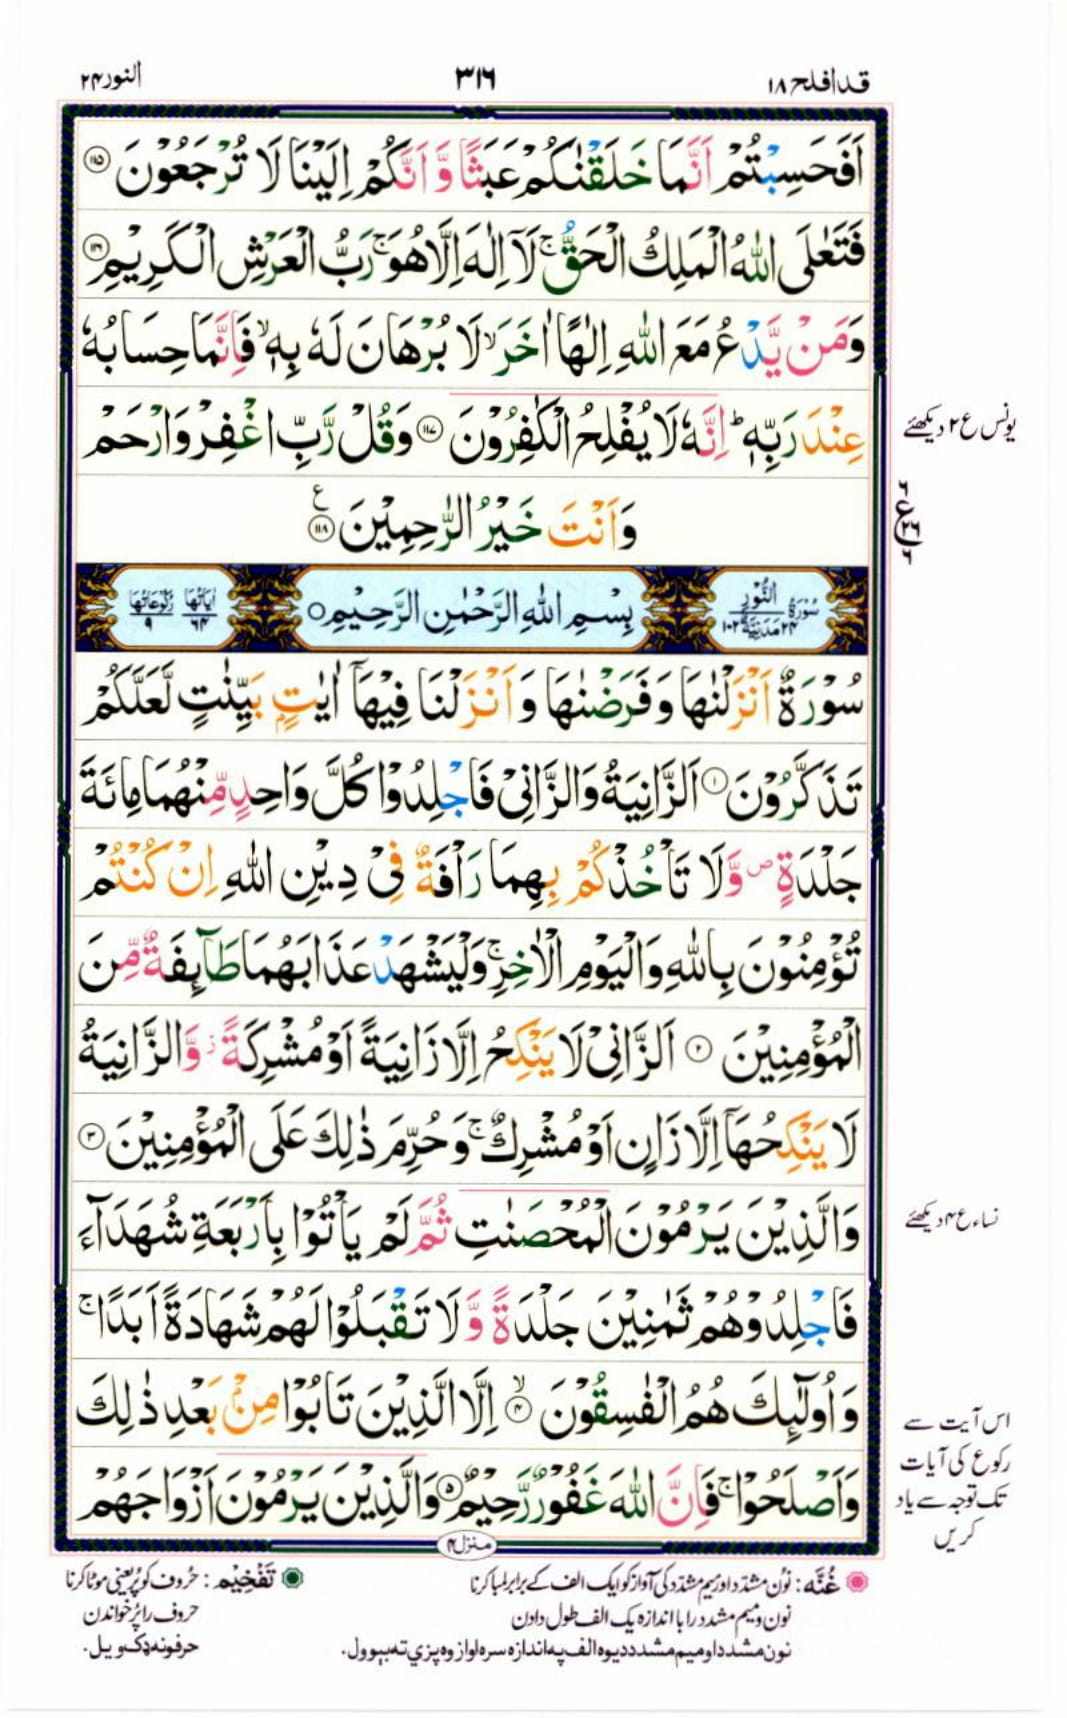 قدافلح ۱۸
۳۱۶
النور ۲۴
اَفَحَسِبْتُمْ اَنَّمَا خَلَقْنٰكُمْ عَبَثًا وَّ اَنَّكُمْ اِلَيْنَا لَا تُرْجَعُوْنَ ۝۱۱۵
فَتَعٰلَى اللّٰهُ الْمَلِكُ الْحَقُّ ۚ لَاۤ اِلٰهَ اِلَّا هُوَ ۚ رَبُّ الْعَرْشِ الْكَرِيْمِ ۝۱۱۶
وَمَنْ يَّدْعُ مَعَ اللّٰهِ اِلٰهًا اٰخَرَ ۙ لَا بُرْهَانَ لَهٗ بِهٖ ۙ فَاِنَّمَا حِسَابُهٗ
عِنْدَ رَبِّهٖ ؕ اِنَّهٗ لَا يُفْلِحُ الْكٰفِرُوْنَ ۝۱۱۷ وَقُلْ رَّبِّ اغْفِرْ وَارْحَمْ
یونس ع ۲ دیکھئے
وَاَنْتَ خَيْرُ الرّٰحِمِيْنَ ۝۱۱۸ ع
سُوْرَةُ النُّوْرِ ۲۴ مَدَنِيَّةٌ ۱۰۲
بِسْمِ اللّٰهِ الرَّحْمٰنِ الرَّحِيْمِ ۝
اٰيَاتُهَا ۶۴ رُكُوْعَاتُهَا ۹
سُوْرَةٌ اَنْزَلْنٰهَا وَ فَرَضْنٰهَا وَ اَنْزَلْنَا فِيْهَاۤ اٰيٰتٍۭ بَيِّنٰتٍ لَّعَلَّكُمْ
تَذَكَّرُوْنَ ۝۱ اَلزَّانِيَةُ وَالزَّانِىْ فَاجْلِدُوْا كُلَّ وَاحِدٍ مِّنْهُمَا مِائَةَ
جَلْدَةٍ ۪ وَّلَا تَاْخُذْكُمْ بِهِمَا رَاْفَةٌ فِىْ دِيْنِ اللّٰهِ اِنْ كُنْتُمْ
تُؤْمِنُوْنَ بِاللّٰهِ وَالْيَوْمِ الْاٰخِرِ ۚ وَلْيَشْهَدْ عَذَابَهُمَا طَآىِٕفَةٌ مِّنَ
الْمُؤْمِنِيْنَ ۝۲ اَلزَّانِىْ لَا يَنْكِحُ اِلَّا زَانِيَةً اَوْ مُشْرِكَةً ز وَّالزَّانِيَةُ
لَا يَنْكِحُهَاۤ اِلَّا زَانٍ اَوْ مُشْرِكٌ ۚ وَحُرِّمَ ذٰلِكَ عَلَى الْمُؤْمِنِيْنَ ۝۳
وَالَّذِيْنَ يَرْمُوْنَ الْمُحْصَنٰتِ ثُمَّ لَمْ يَاْتُوْا بِاَرْبَعَةِ شُهَدَآءَ
نساء ع ۴ دیکھئے
فَاجْلِدُوْهُمْ ثَمٰنِيْنَ جَلْدَةً وَّلَا تَقْبَلُوْا لَهُمْ شَهَادَةً اَبَدًا ۚ
وَاُولٰٓىِٕكَ هُمُ الْفٰسِقُوْنَ ۝۴ ۙ اِلَّا الَّذِيْنَ تَابُوْا مِنْۢ بَعْدِ ذٰلِكَ
وَاَصْلَحُوْا ۚ فَاِنَّ اللّٰهَ غَفُوْرٌ رَّحِيْمٌ ۝۵ وَالَّذِيْنَ يَرْمُوْنَ اَزْوَاجَهُمْ
اس آیت سے
رکوع کی آیات
تک توجہ سے یاد
کریں
منزل ۴
غُنَّه: نون مشدّد اور میم مشدّد کی آواز کو ایک الف کے برابر لمبا کرنا
نون و میم مشدد را با اندازه یک الف طول دادن
نون مشدد او میم مشدد د یوه الف په اندازه سره لواز وه پزي ته بېوول.
تَفْخِيْم: حُروف کو پُر یعنی موٹا کرنا
حروف را پُر خواندن
حرفونه ډک ویل.